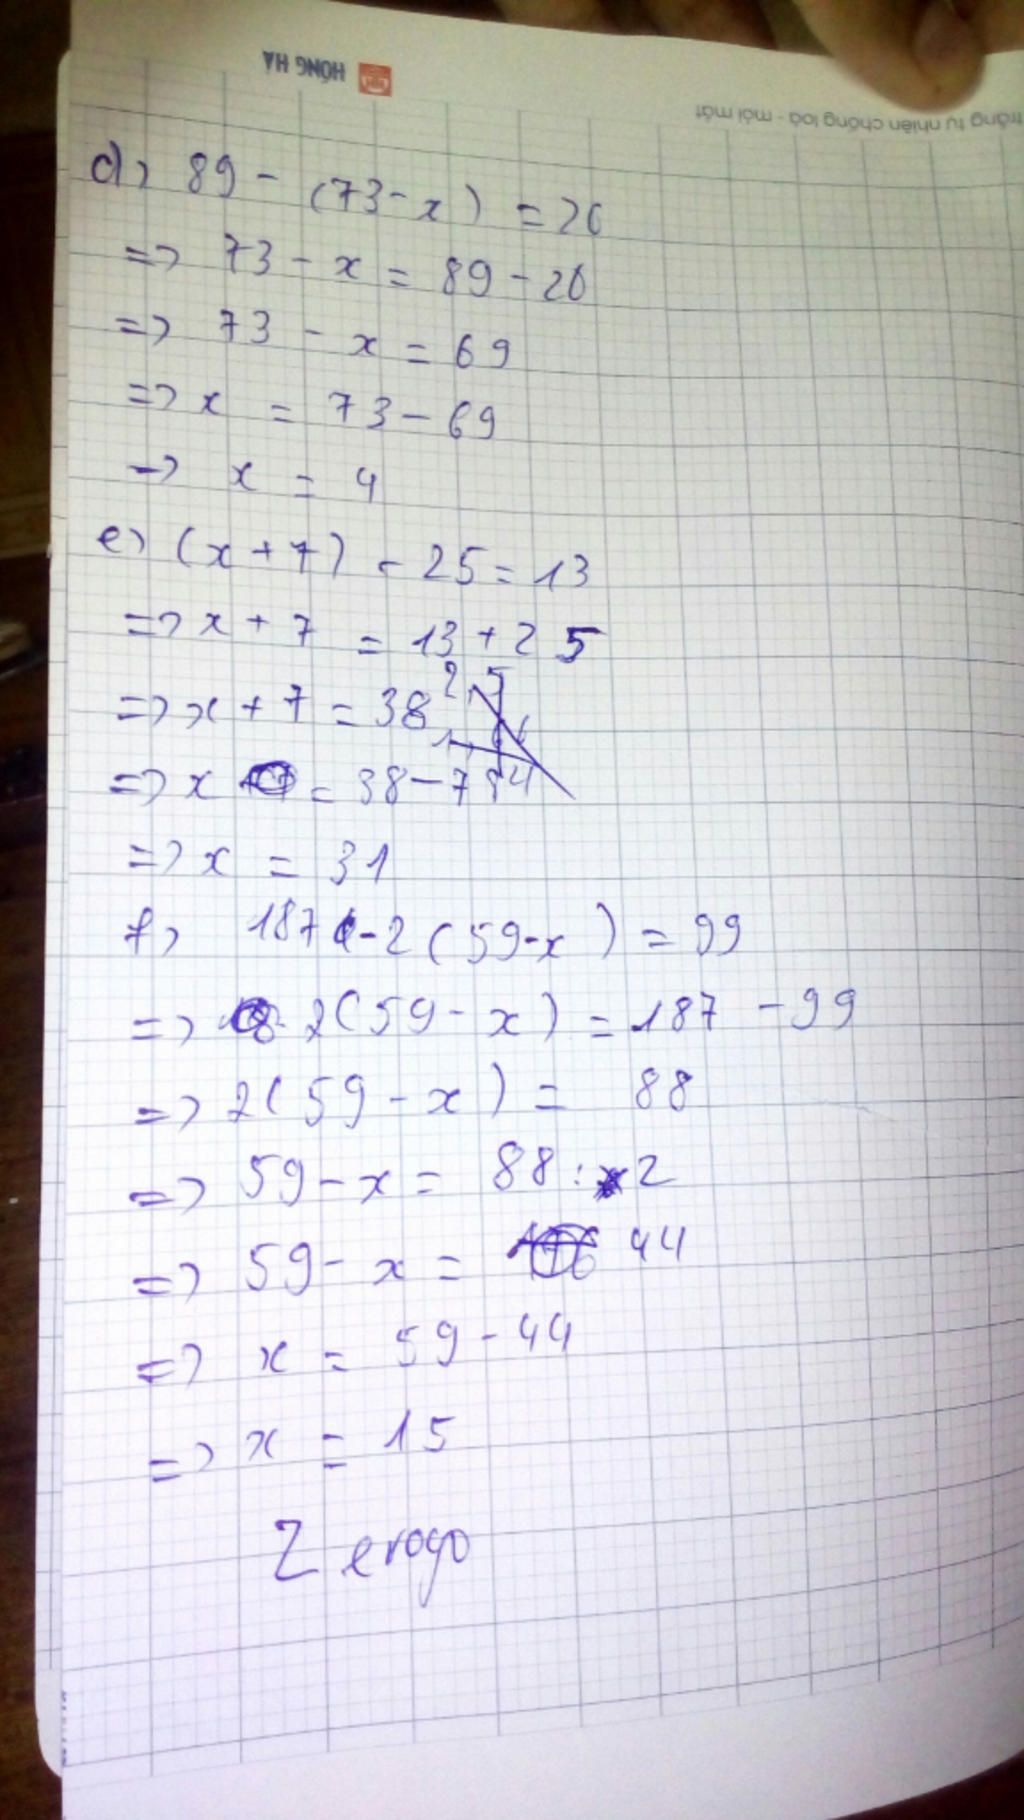 HỒNG HÀ
trắng tự nhiên chống loá - mỏi mắt
d) 89 - (73 - x) = 20
=> 73 - x = 89 - 20
=> 73 - x = 69
=> x = 73 - 69
=> x = 4
e) (x + 7) - 25 = 13
=> x + 7 = 13 + 25
=> x + 7 = 38
=> x = 38 - 7
=> x = 31
f) 187 - 2 (59 - x) = 99
=> 2(59 - x) = 187 - 99
=> 2(59 - x) = 88
=> 59 - x = 88 : 2
=> 59 - x = 44
=> x = 59 - 44
=> x = 15
Zerogo